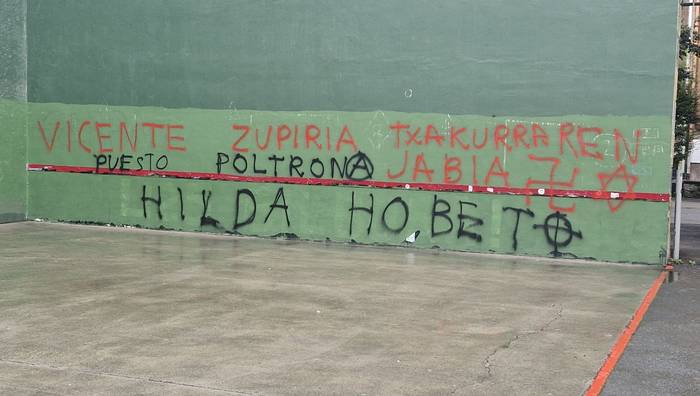 VICENTE ZUPIRIA TXAKURRAREN
PUESTO POLTRONA JABIA
HILDA HOBETO